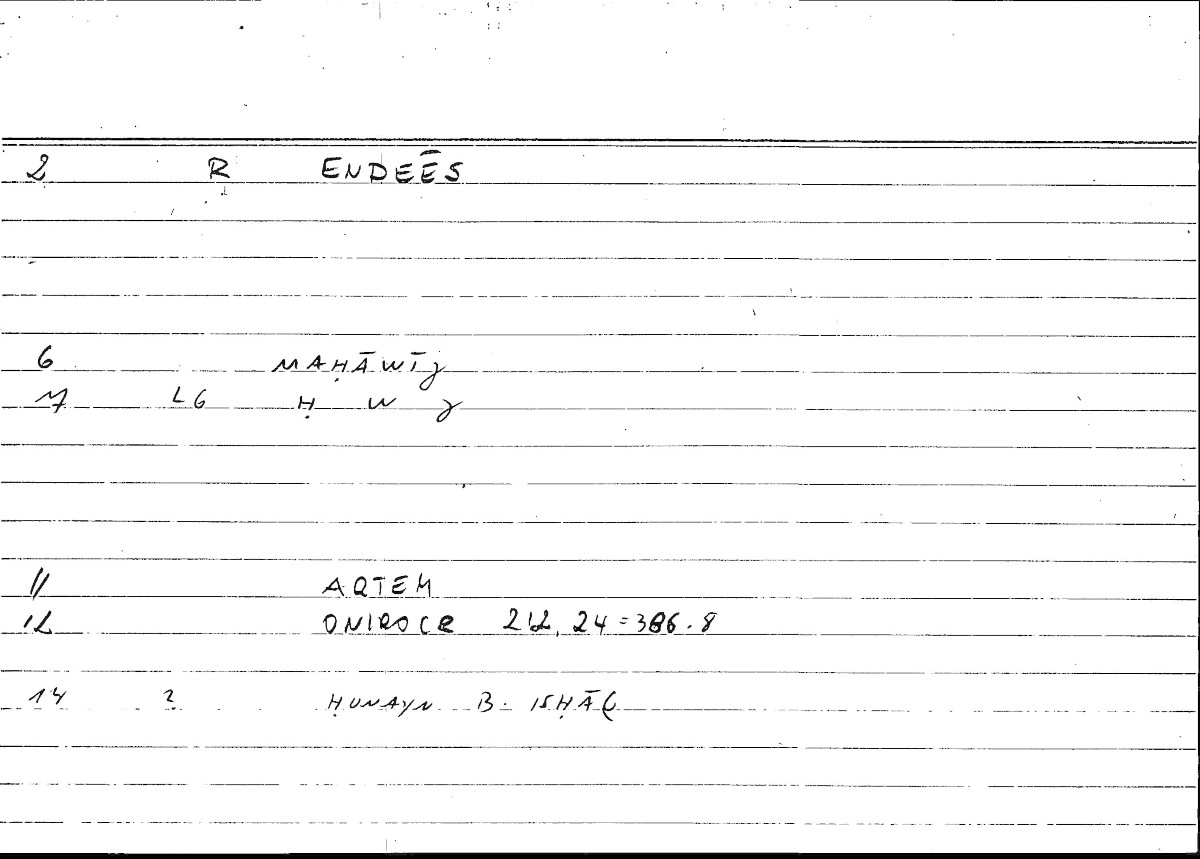 2 R ENDEĒS
6 MAḤĀWĪJ
7 LG Ḥ W J
11 ARTEM
12 ONIROCR 212, 24 = 386.8
14 2 ḤUNAYN B. ISḤĀQ